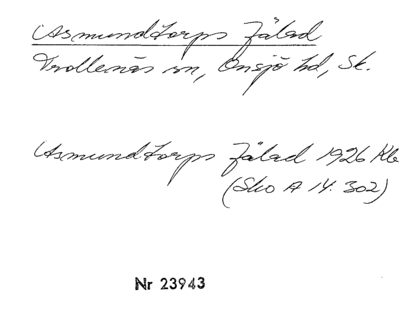 Asmundtorps Fälad
Trollenäs sn, Onsjö hd, Sk.
Asmundtorps Fälad 1926 Kb
(Sko A 14. 302)
Nr 23943